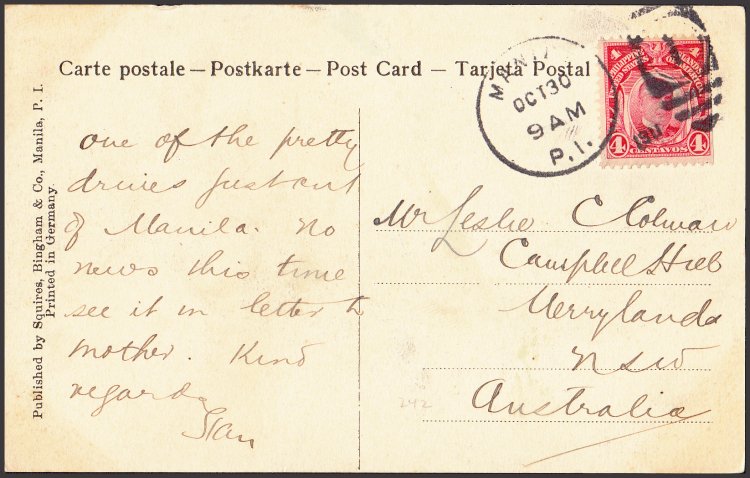 Carte postale — Postkarte — Post Card — Tarjeta Postal
MANILA
OCT 30
9 AM
P. I.
4 4
PHILIPPINE ISLANDS
UNITED STATES OF AMERICA
4 CENTAVOS 4
Published by Squires, Bingham & Co., Manila, P. I.
Printed in Germany
one of the pretty
drives just out
of Manila. No
news this time
see it in letter to
mother. Kind
regards
Stan
Mr Leslie C Colman
Campbell Hill
Merrylands
NSW
Australia
242